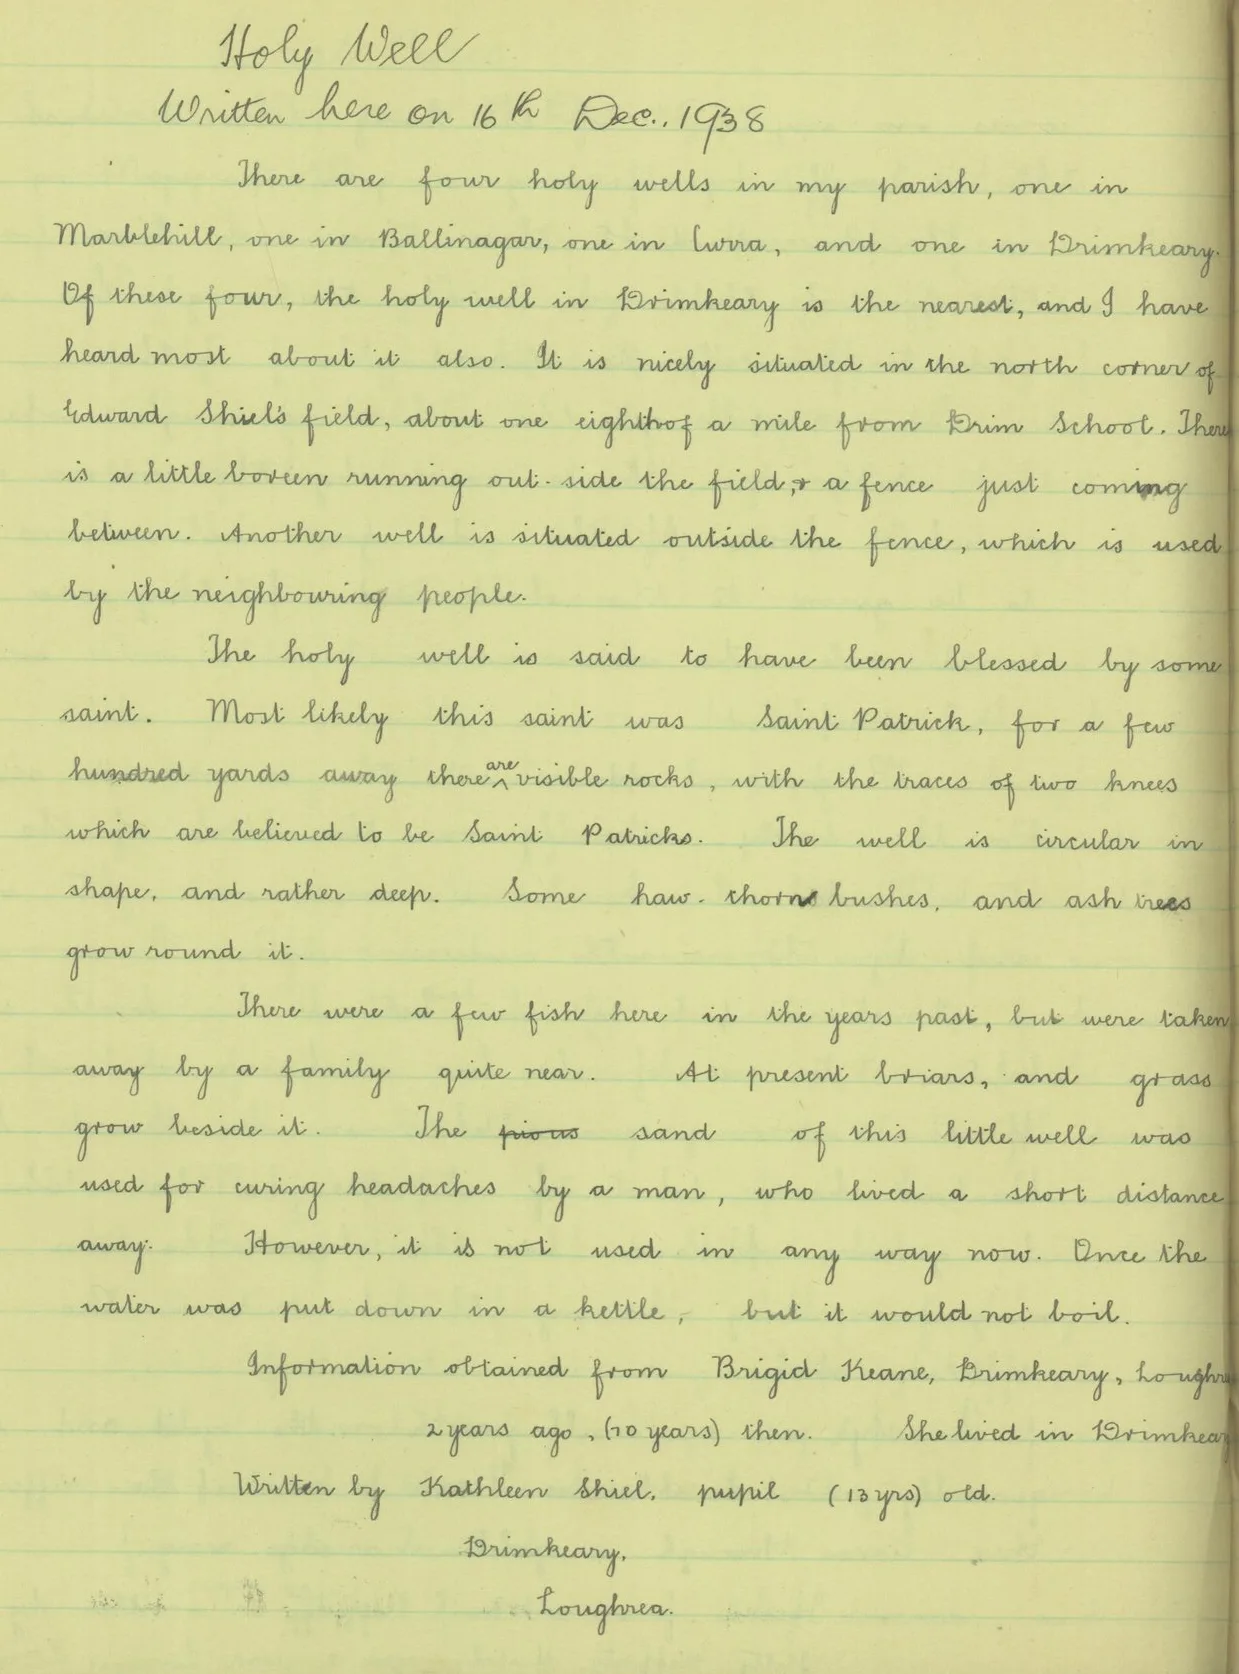 Holy Well
Written here on 16th Dec., 1938
There are four holy wells in my parish, one in
Marblehill, one in Ballinagar, one in Curra, and one in Drimkeary.
Of these four, the holy well in Drimkeary is the nearest, and I have
heard most about it also. It is nicely situated in the north corner of
Edward Shiel's field, about one eighth of a mile from Drim School. There
is a little boreen running out-side the field, & a fence just coming
between. Another well is situated outside the fence, which is used
by the neighbouring people.
The holy well is said to have been blessed by some
saint. Most likely this saint was Saint Patrick, for a few
hundred yards away there are visible rocks, with the traces of two knees
which are believed to be Saint Patricks. The well is circular in
shape, and rather deep. Some haw-thorn bushes, and ash trees
grow round it.
There were a few fish here in the years past, but were taken
away by a family quite near. At present briars, and grass
grow beside it. The pious sand of this little well was
used for curing headaches by a man, who lived a short distance
away. However, it is not used in any way now. Once the
water was put down in a kettle, but it would not boil.
Information obtained from Brigid Keane, Drimkeary, Loughre
2 years ago, (70 years) then. She lived in Drimkear
Written by Kathleen Shiel, pupil (13 yrs) old.
Drimkeary,
Loughrea.